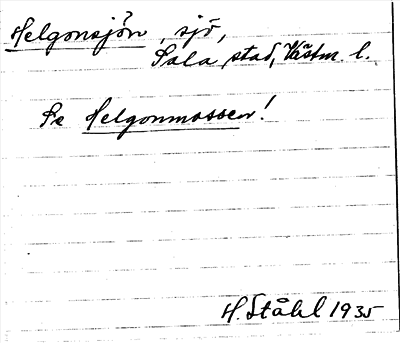 Helgonsjön, sjö,
Sala stad, Västm. l.
Se Helgonmossen!
H. Ståhl 1935